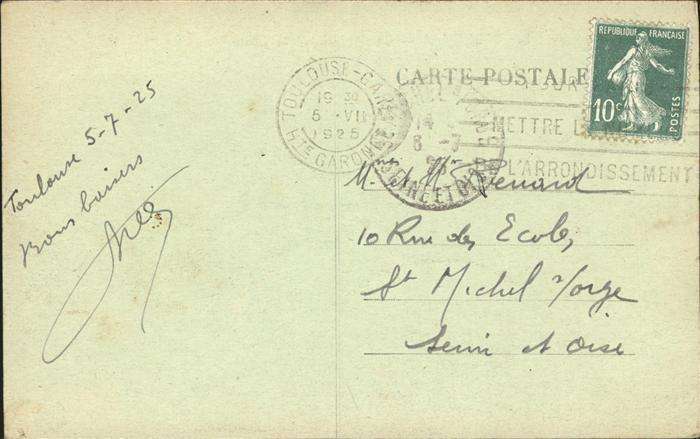 CARTE POSTALE
RÉPUBLIQUE FRANÇAISE
10c
POSTES
TOULOUSE-GARE
19 30
5 VII
1925
HTE GARONNE
POUR
METTRE L
L'ARRONDISSEMENT
14
6 -7
25
SEINE ET OISE
Toulouse 5-7-25
Bons baisers
Mme & Mr
10 Rue des Ecoles
St Michel s/orge
Seine et Oise